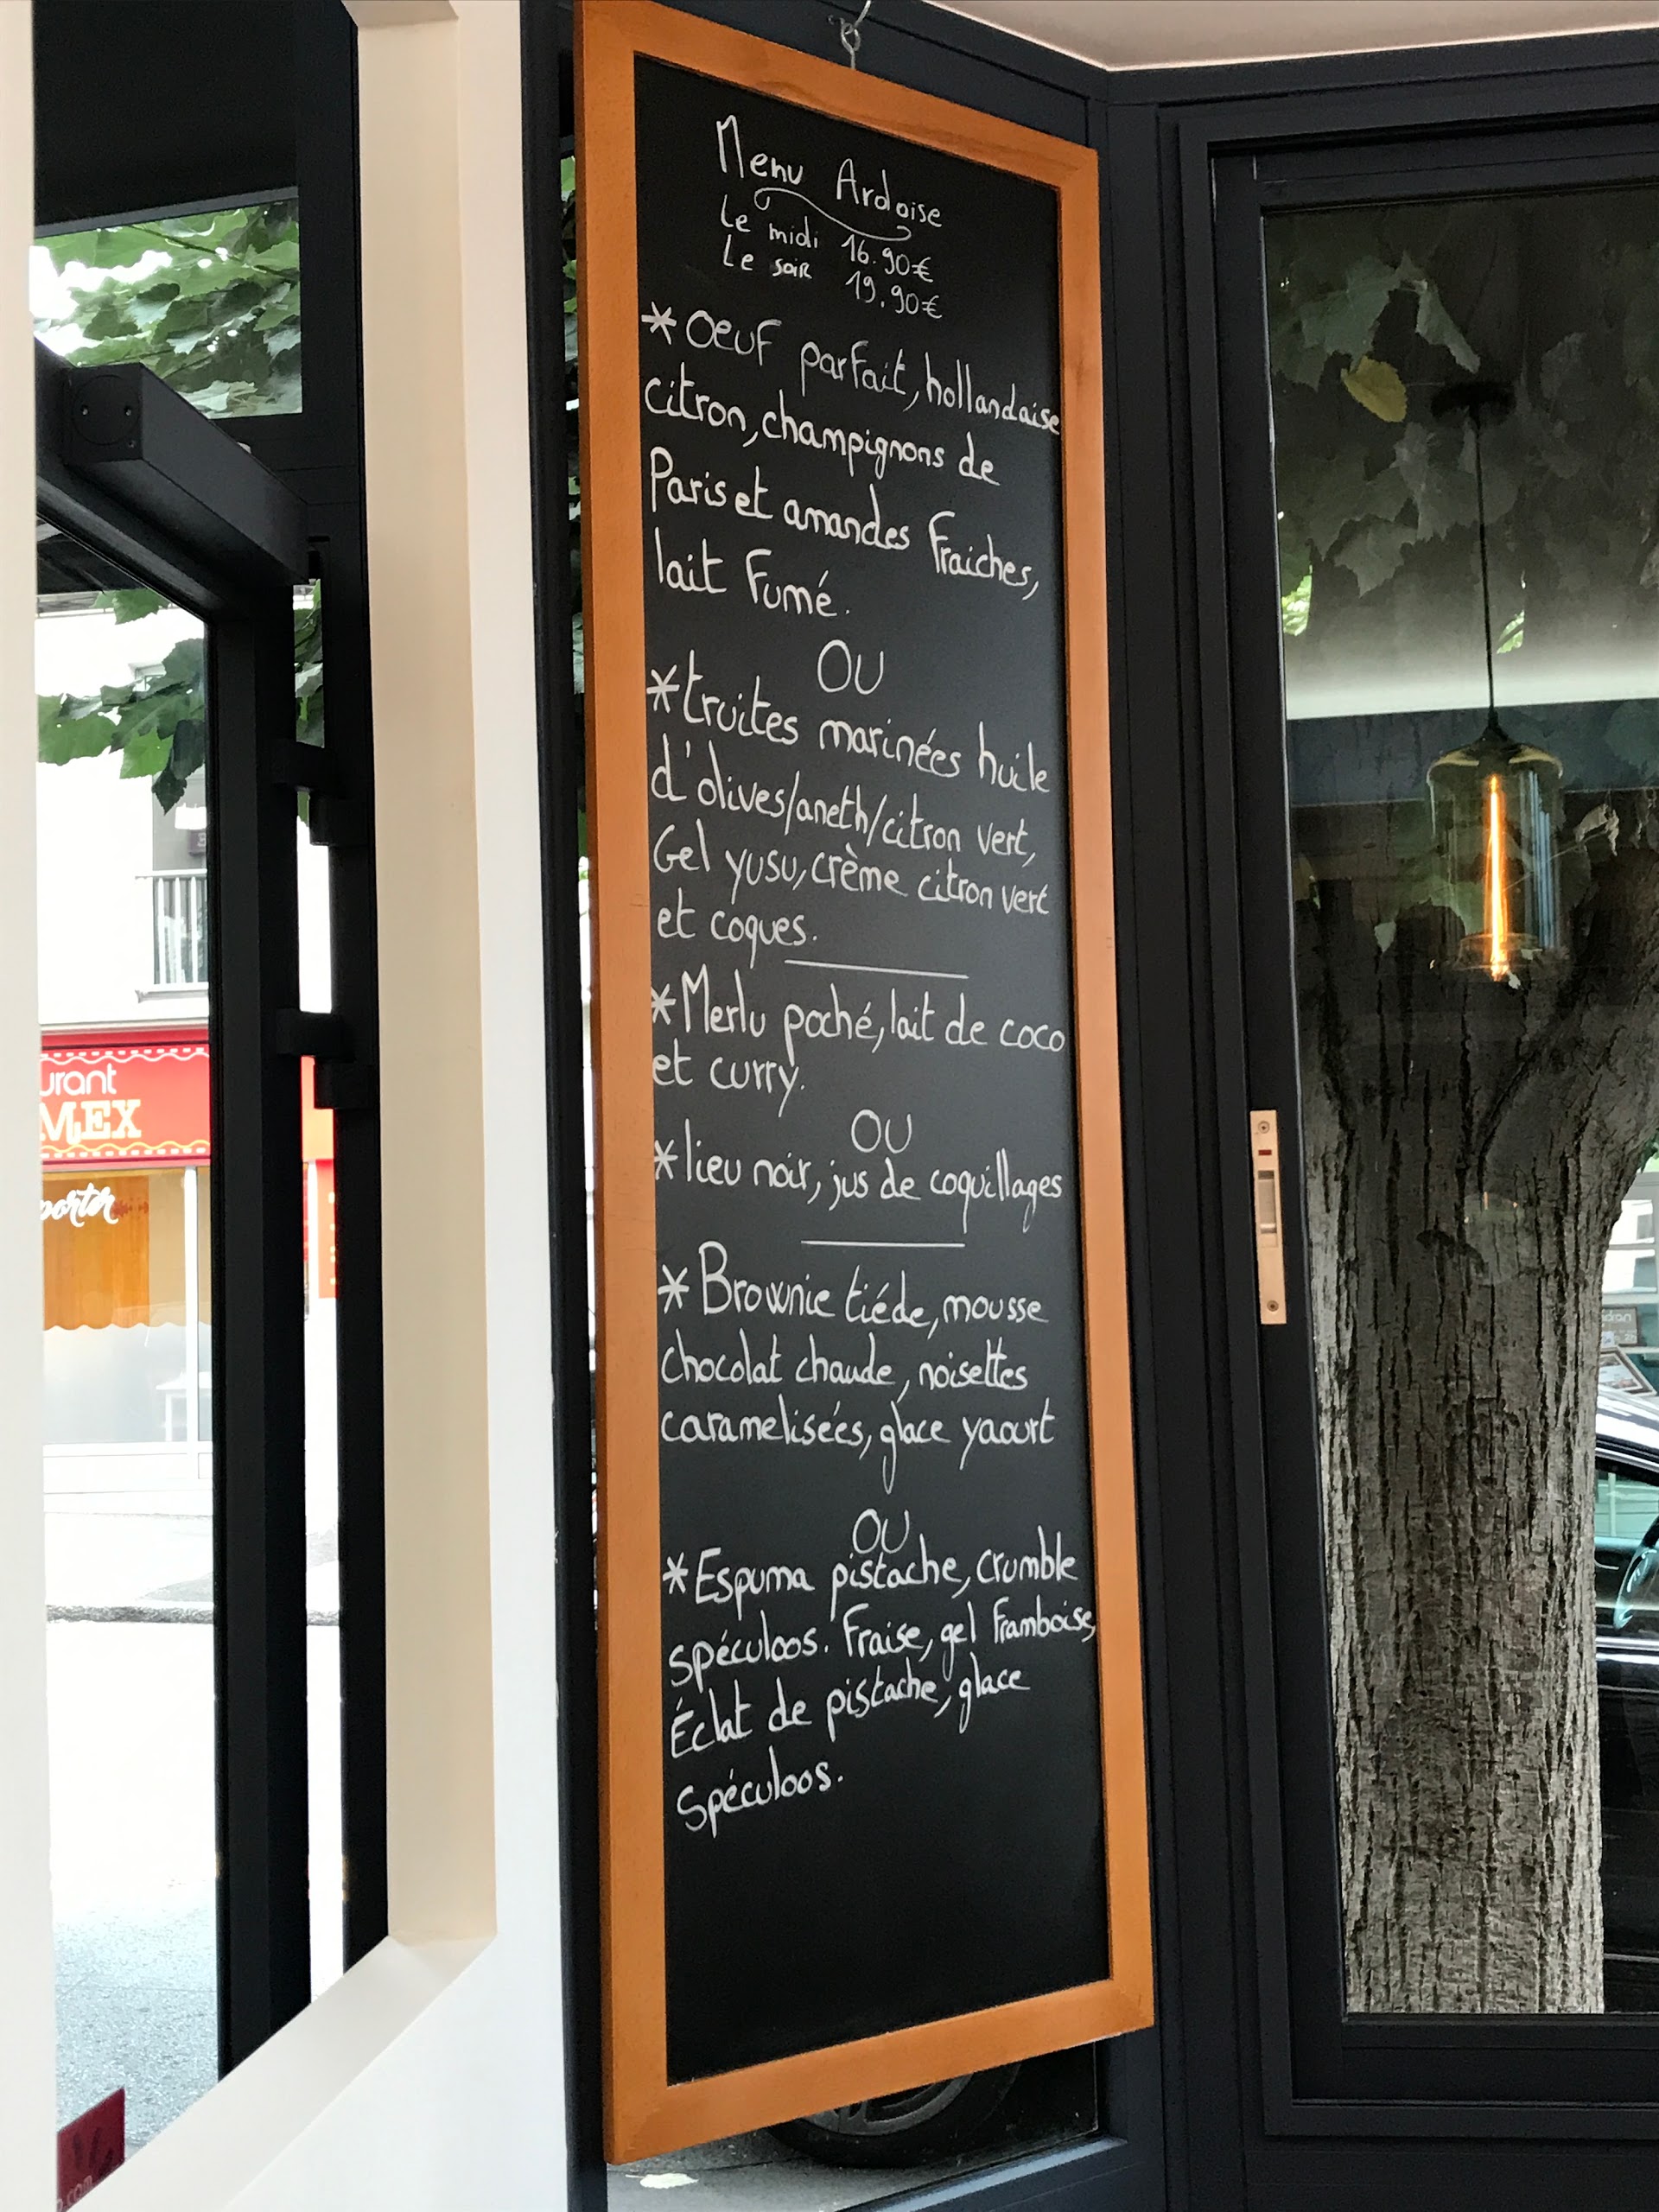 Menu Ardoise
Le midi 16.90€
Le soir 19.90€
*Oeuf parfait, hollandaise
citron, champignons de
Paris et amandes fraiches,
lait fumé.
OU
*truites marinées huile
d'olives/aneth/citron vert,
Gel yusu, crème citron vert
et coques.
*Merlu poché, lait de coco
et curry.
OU
*lieu noir, jus de coquillages
*Brownie tiéde, mousse
chocolat chaude, noisettes
caramelisées, glace yaourt
OU
*Espuma pistache, crumble
spéculoos. Fraise, gel framboise,
Éclat de pistache, glace
Spéculoos.
urant
MEX
porter